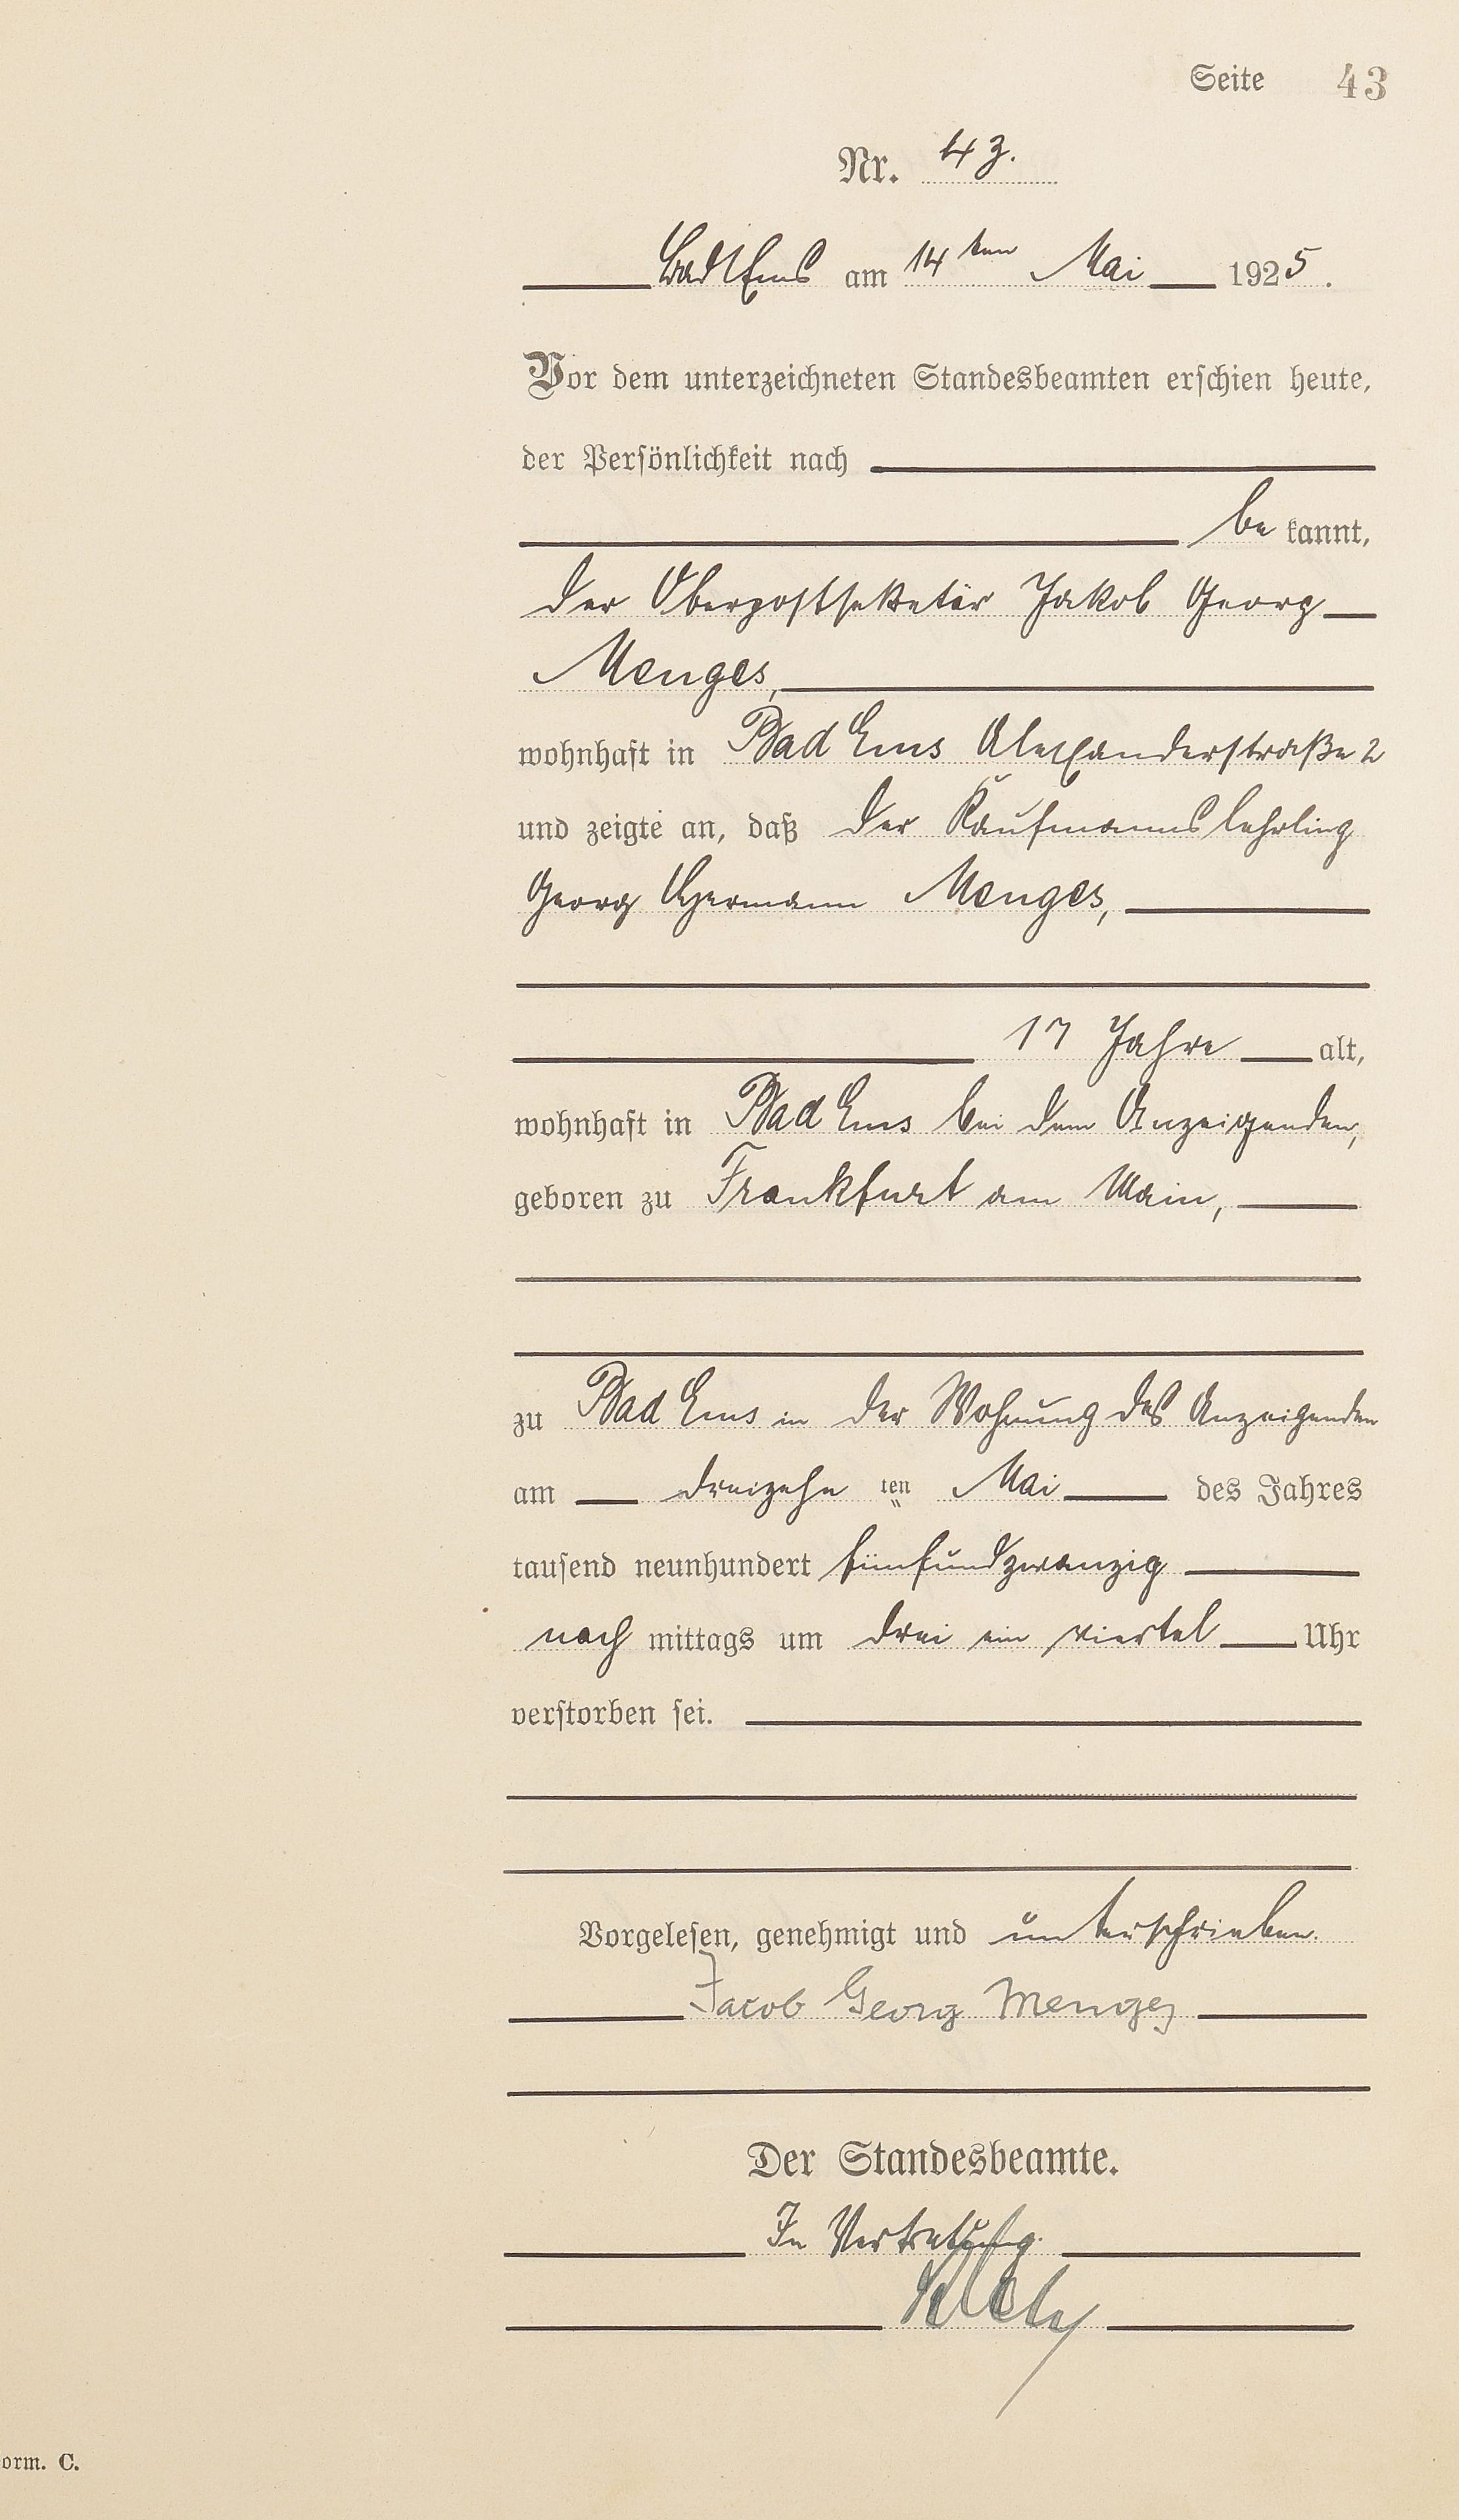 Seite 43
Nr. 43.
Bad Ems am 14ten Mai 1925.
Vor dem unterzeichneten Standesbeamten erschien heute,
der Persönlichkeit nach
be kannt,
der Oberpostsekretär Jakob Georg
Menges,
wohnhaft in Bad Ems Alexanderstraße 2
und zeigte an, daß der Kaufmannslehrling
Georg Hermann Menges,
17 Jahre alt,
wohnhaft in Bad Ems bei dem Anzeigenden,
geboren zu Frankfurt am Main,
zu Bad Ems in der Wohnung des Anzeigenden
am dreizehn ten Mai des Jahres
tausend neunhundert fünfundzwanzig
nach mittags um drei ein viertel Uhr
verstorben sei.
Vorgelesen, genehmigt und unterschrieben.
Jacob Georg Menges
Der Standesbeamte.
In Vertretung.
orm. C.